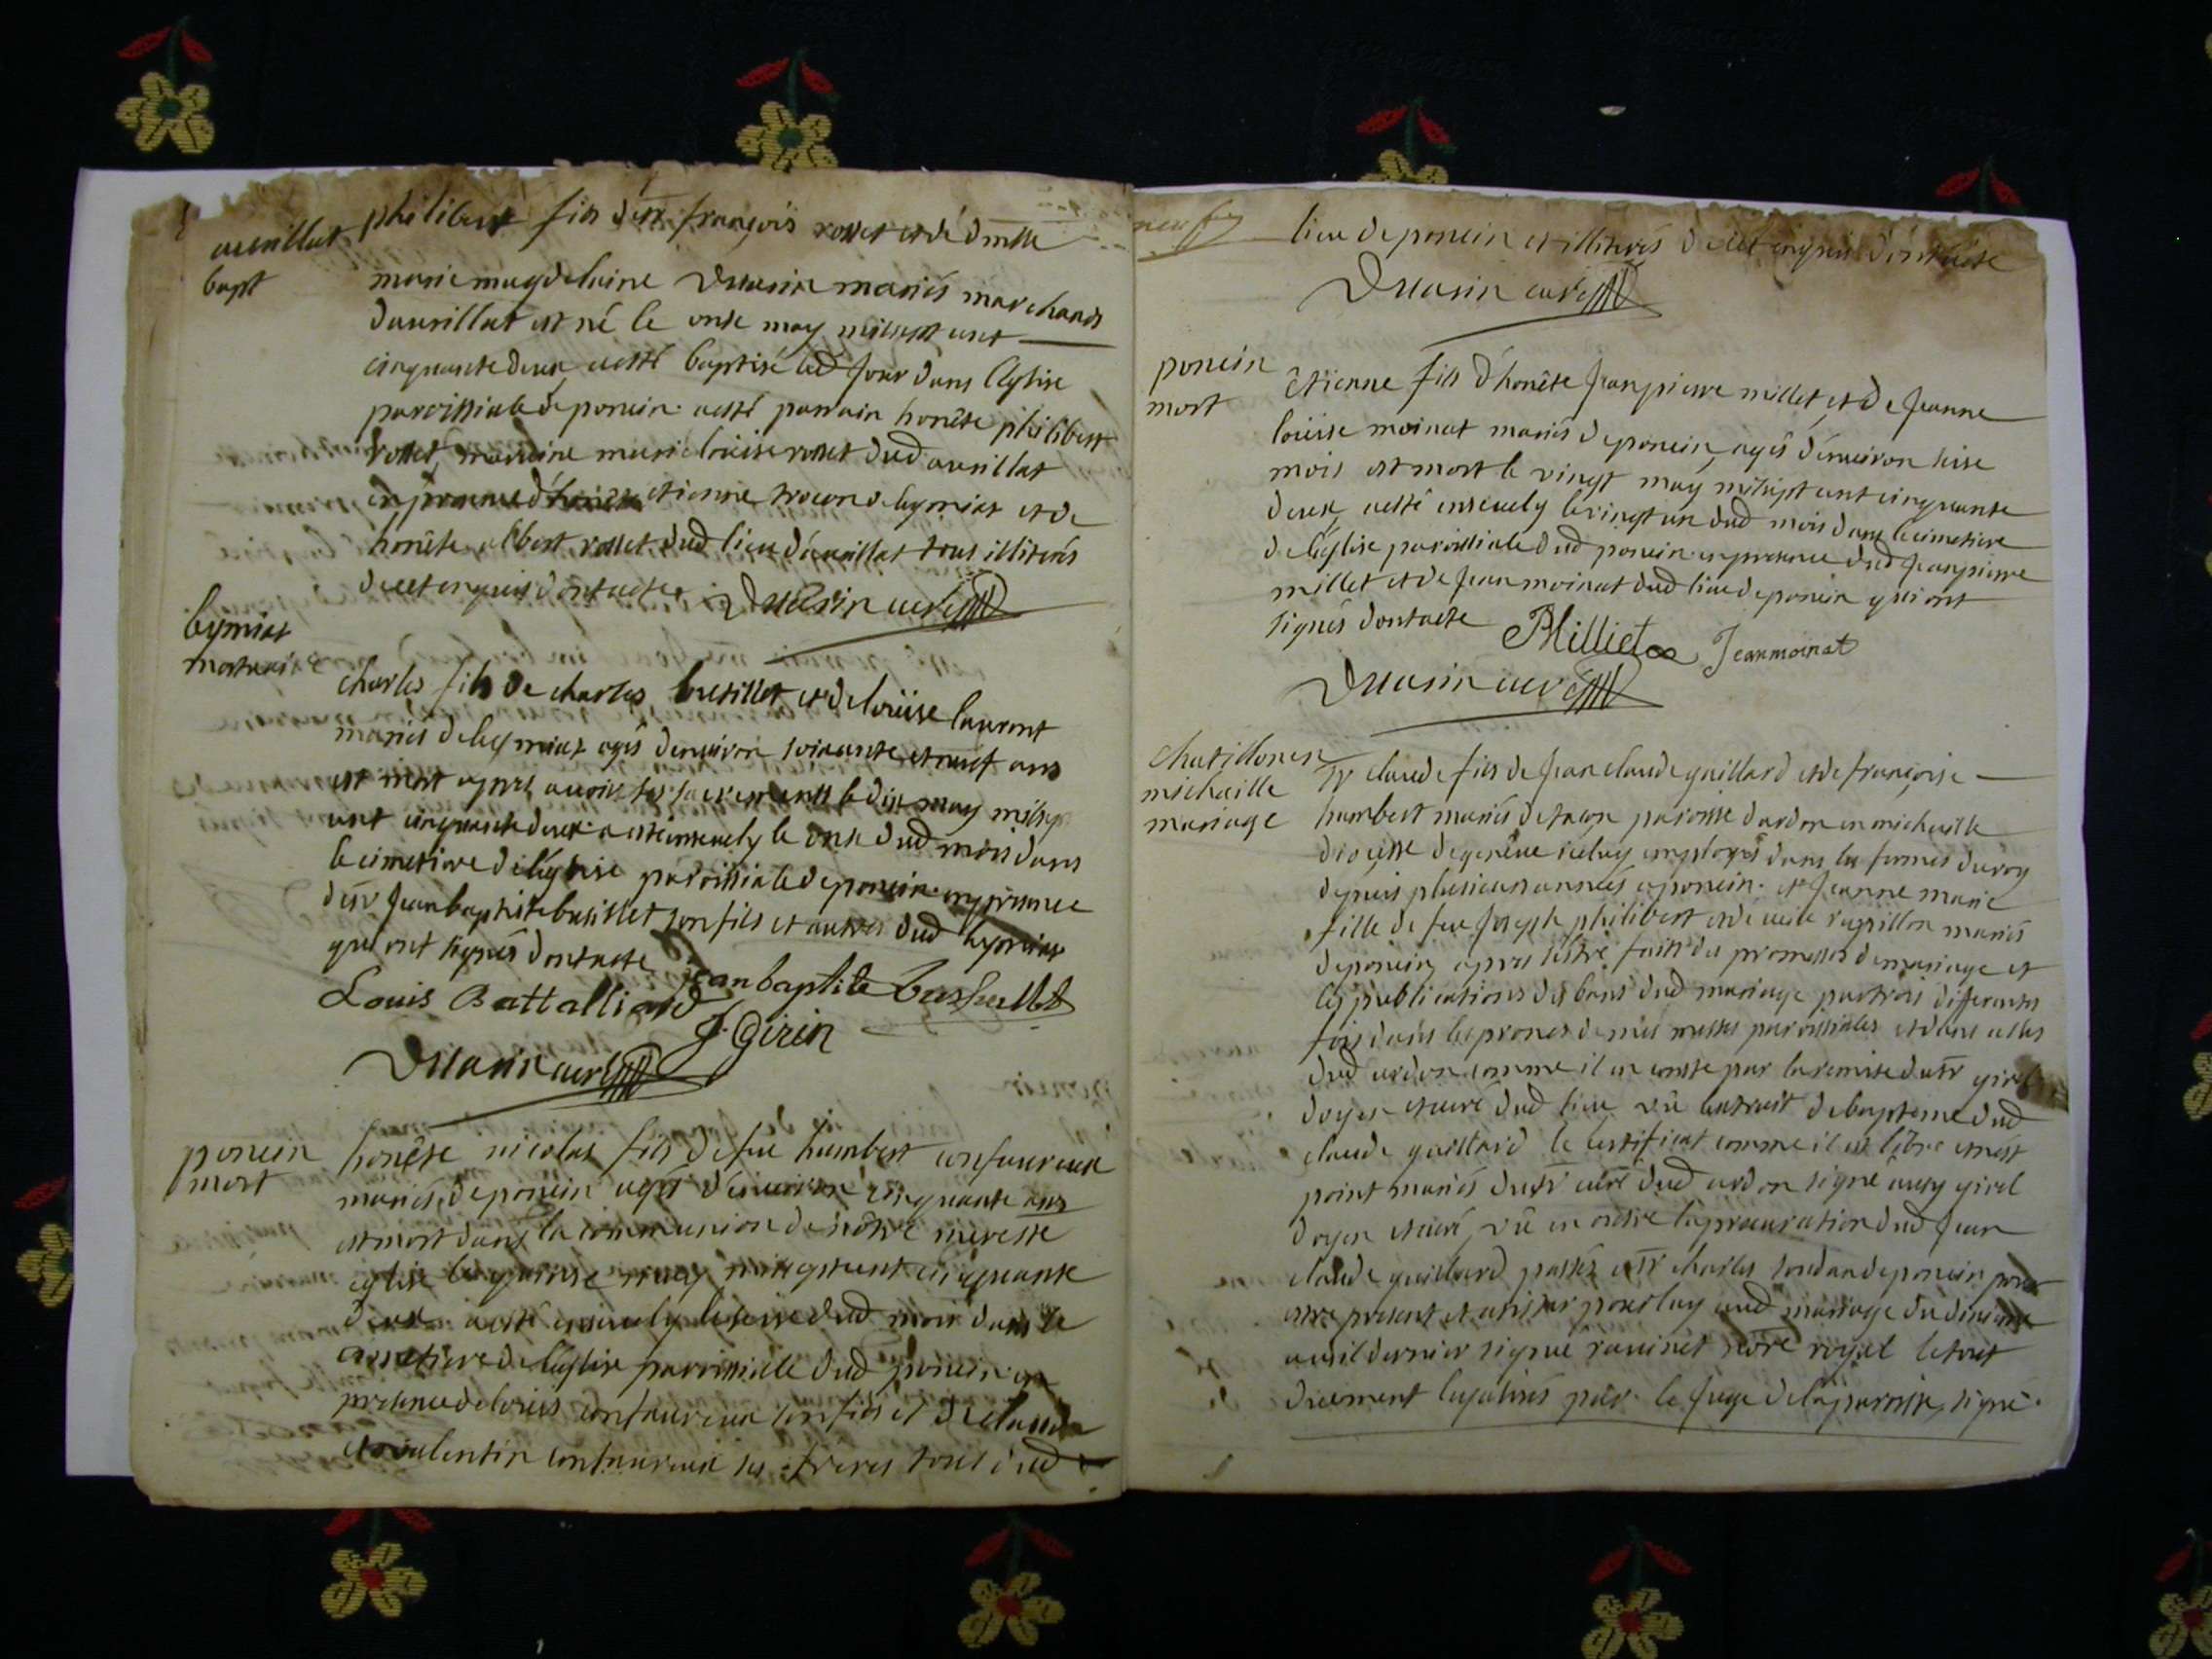 avrillat
bapt
philibert fils de sr françois rosset et de dmlle
marie magdelaine Duasin mariés marchands
d'avrillat est né le onse may mil sept cent
cinquante deux, a esté baptisé led jour dans l'eglise
paroissiale de poncin. a esté parrain honête philibert
rosset, marraine marie loüise rosset dud avrillat
en presence d'honête etienne de leymiat et de
honête albert rosset dud lieu d'avrillat tous illiterés
de cet enquis dont acte. Duasin curé
leymiat
mortuaire
charles fils de charles busillet et de loüise laurent
mariés de leymiat agé d'environ soixante et neuf ans
est mort apres avoir les sacrements le dix may mil sept
cent cinquante deux. a esté enseuely le onse dud mois dans
le cimetiere de l'eglise paroissiale de poncin. en presence
de sr jean baptiste busillet son fils et autres dud leymiat
qui ont signés dont acte jean baptiste Bussillet
Louis Battalliard
J. Girin
Duasin curé
poncin
mort
honête nicolas fils de feu humbert confavreux
mariés de poncin agé d'environ cinquante ans
est mort dans la communion de nôtre mere ste
eglise le quinse may mil sept cent cinquante
deux. a esté enseuely le seise dud mois dans le
cimetiere de l'eglise paroissialle dud poncin. en
presence de loüis confavreux son fils et de claude
et valentin confavreux ses freres tous dud
neuf
lieu de poncin et illiterés de cet enquis dont acte
Duasin curé
poncin
mort
êtienne fils d'honête jean pierre millet, et de jeanne
loüise moinat mariés de poncin, agé d'environ seise
mois est mort le vingt may mil sept cent cinquante
deux, a esté enseuely le vingt un dud mois dans le cimetiere
de l'eglise paroissiale dud poncin. en presence dud jean pierre
millet et de jean moinat dud lieu de poncin qui ont
signés dont acte Milliet Jean moinat
Duasin curé
chatillon en
michaille
mariage
sr claude fils de jean claude guillard et de françoise
humbert mariés de tacon paroisse d'ardon en michaille
diocesse de genêve iceluy employé dans les fermes du roy
depuis plusieurs années a poncin. et jeanne marie
fille de feu joseph philibert et de mariés
de poncin, apres s'estre faits des promesses de mariage et
les publications des bans dud mariage par trois differentes
fois dans les prones de mes messes paroissiales et dans celles
dud ardon comme il en conste par la remise du sr girel
doyen et curé dud lieu vû l'extrait de bapteme dud
claude guillard le certificat comme il est libre et n'est
point mariés du sr curé dud ardon signé aussy girel
doyen et curé, vû en outre la procuration dud jean
claude guillard passée a sr charles de poncin pour
estre present et assister pour luy aud mariage du
avril dernier signé ravinet nore royal le tout
düement legalisés par le juge de la paroisse, signé.